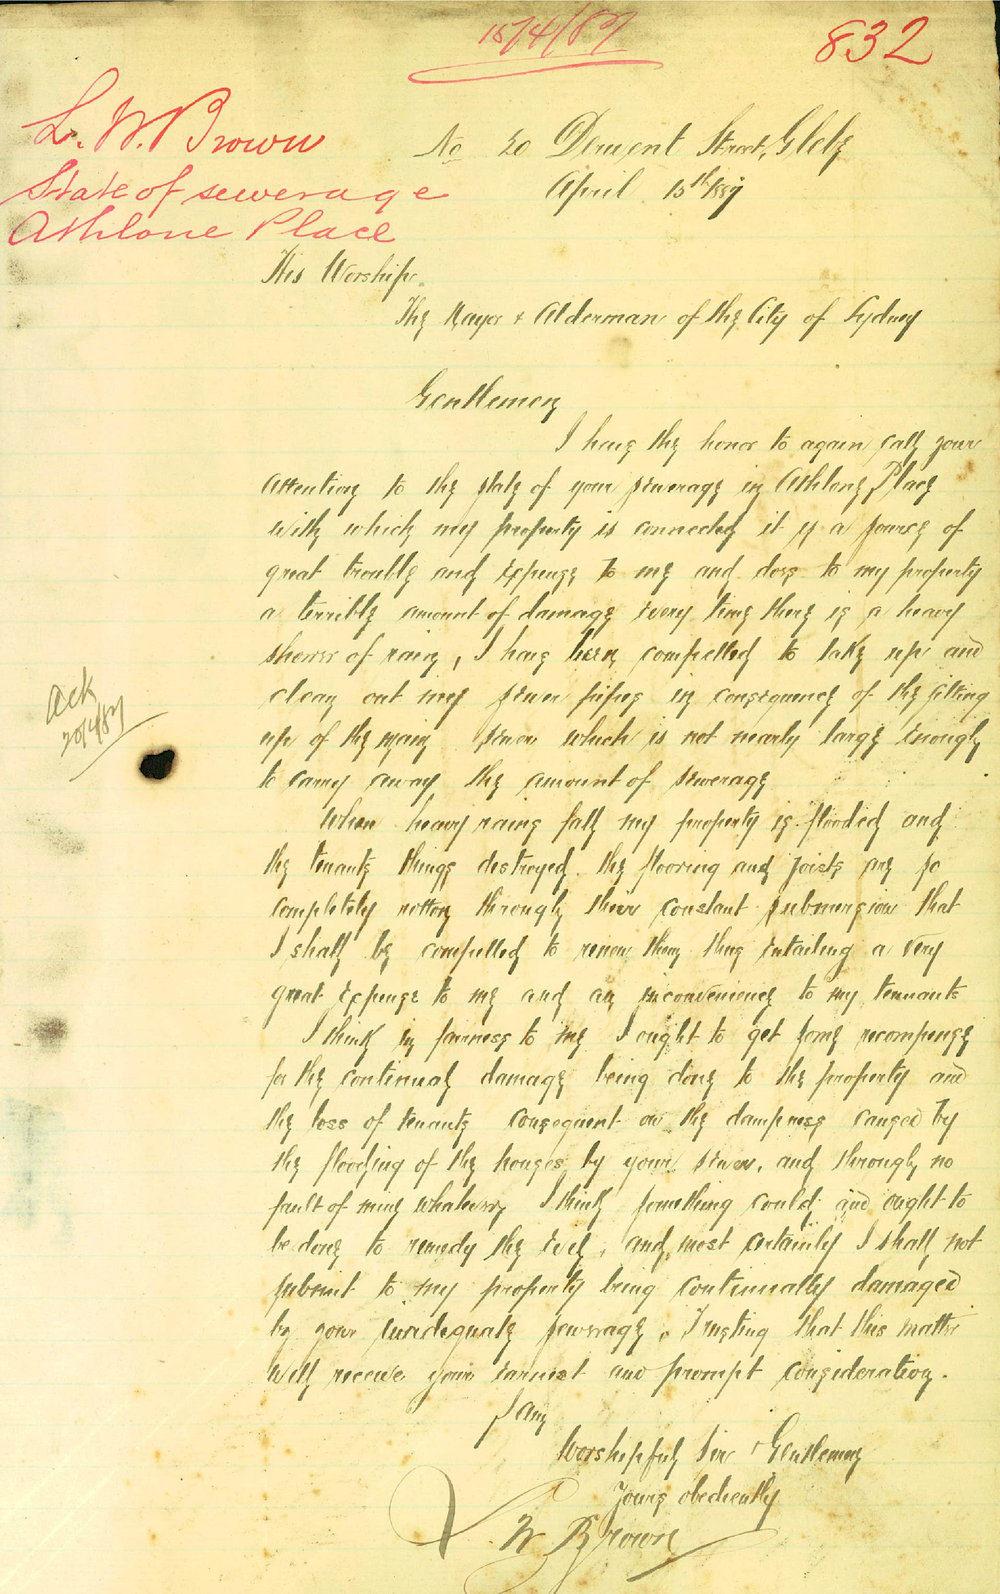 15/4/87
832
L. W. Brown
State of sewerage
Athlone Place
No 20 Derwent Street, Glebe
April 15th 1887
His Worship
The Mayor & Alderman of the City of Sydney
Gentlemen
I have the honor to again call your
attention to the state of your sewerage in Athlone Place
with which my property is connected it is a source of
great trouble and expense to me and does to my property
a terrible amount of damage every time there is a heavy
shower of rain, I have been compelled to take up and
clean out my sewer pipes in consequence of the silting
up of the main sewer which is not nearly large enough
to carry away the amount of sewerage
When heavy rains fall my property is flooded and
the tenants things destroyed. the flooring and joists are so
completely rotton through their constant submersion that
I shall be compelled to renew them thus entailing a very
great expense to me and an inconvenience to my tennants
I think in fairness to me I ought to get some recompense
for the continual damage being done to the property and
the loss of tenants consequent on the dampness caused by
the flooding of the houses by your sewer, and through no
fault of mine whatever I think something could and ought to
be done to remedy the evil, and most certainly I shall not
submit to my property being continually damaged
by your inadequate sewerage. Trusting that this matter
will receive your earnest and prompt consideration.
I am
Worshipful Sir & Gentlemen
Yours obediently
L. W Brown
Ack
20/4/87